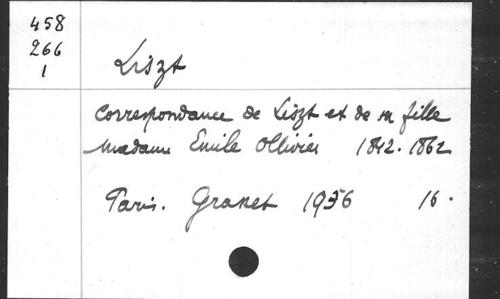 458
266
1
Liszt
Correspondance de Liszt et de sa fille
Madame Emile Ollivier 1842-1862
Paris. Grasset 1936 16.